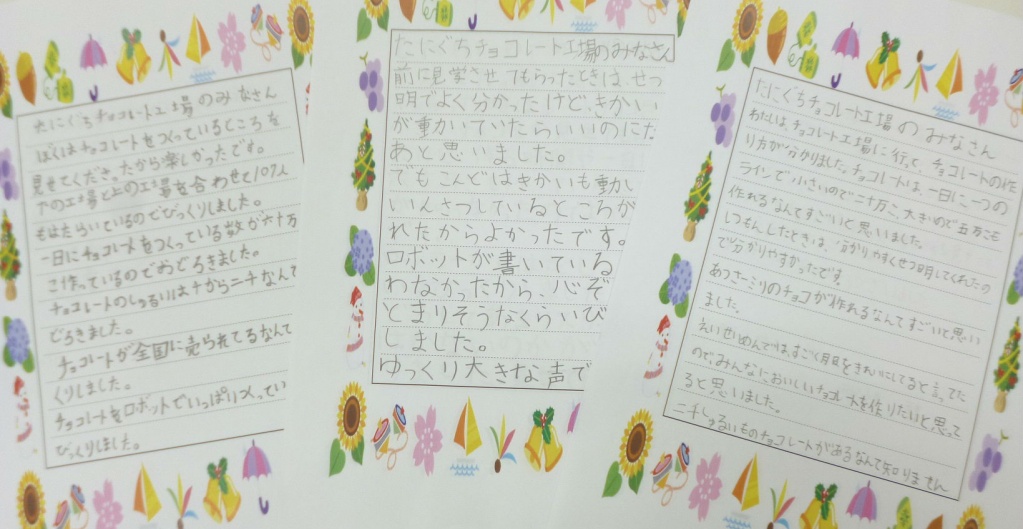 たにぐちチョコレート工場のみなさん
ぼくはチョコレートをつくっているところを
見せてくださったから楽しかったです。
下の工場と上の工場を合わせて107人
もはたらいているのでびっくりしました。
一日にチョコレートをつくっている数が六十万
こ作っているのでおどろきました。
チョコレートのしゅるいは千から二千なんて
どろきました。
チョコレートが全国に売られてるなんて
くりしました。
チョコレートをロボットでいっぱいつくってい
びっくりしました。
たにぐちチョコレート工場のみなさん
前に見学させてもらったときは、せつ
明でよく分かったけど、きかい
が動いていたらいいのにな
あと思いました。
でもこんどはきかいも動い
いんさつしているところが
れたからよかったです。
ロボットが書いている
わなかったから、心ぞ
とまりそうなくらいび
しました。
ゆっくり大きな声で
たにぐちチョコレート工場のみなさん
わたしは、チョコレート工場に行って、チョコレートの作
り方が分かりました。チョコレートは、一日に一つの
ラインで小さいので二十万こ、大きいので五万こも
作れるなんてすごいと思いました。
しつもんしたときは、分かりやすくせつ明してくれたの
で分かりやすかったです。
あつさ一ミリのチョコが作れるなんてすごいと思い
ました。
えいせいめんでは、すごく服をきれいにしてると言ってた
ので、みんなにおいしいチョコレートを作りたいと思って
ると思いました。
二千しゅるいものチョコレートがあるなんて知りません